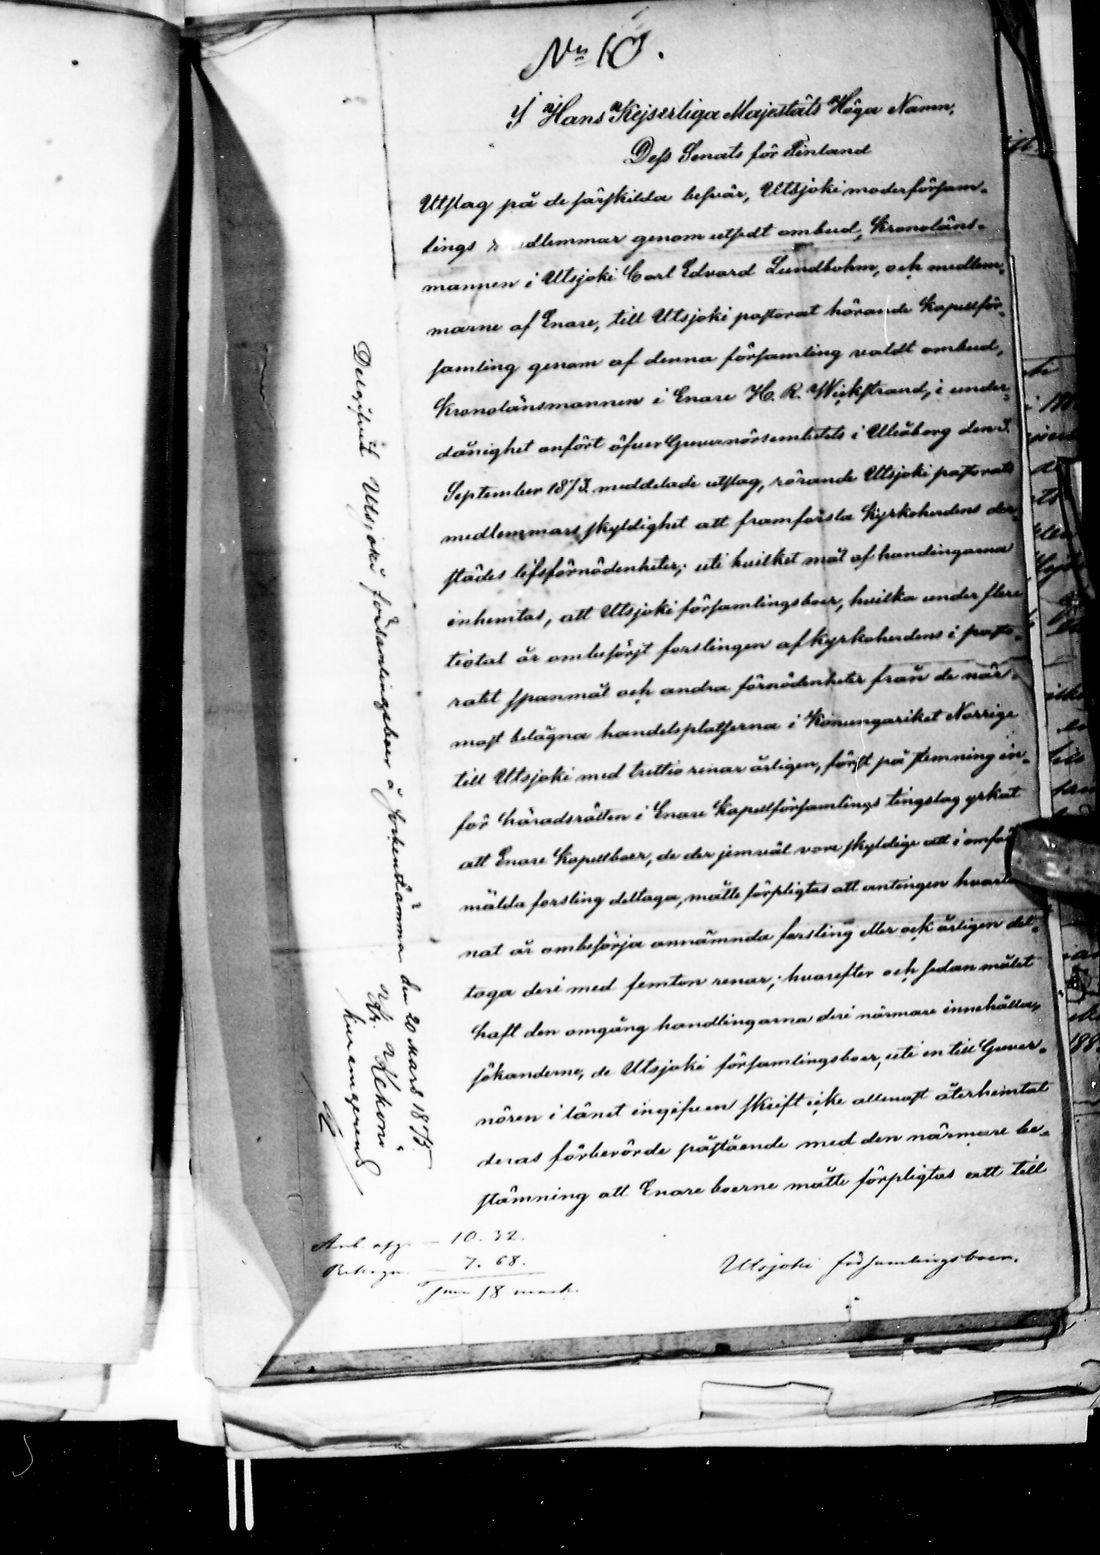 No 10.
I Hans Kejserliga Majestäts Höga Namn,
Dess Senats för Finland
Utslag på de särskilda besvär, Utsjoki moderförsam-
lings medlemmar genom utsedt ombud, Kronoläns-
mannen i Utsjoki Carl Edvard Lundbohm, och medlem-
marne af Enare, till Utsjoki pastorat hörande Kapellför-
samling genom af denna församling valdt ombud,
Kronolänsmannen i Enare H. R. Wickstrand, i under-
dånighet anfört öfver Guvernörsembetets i Uleåborg den 3
September 1873 meddelade utslag, rörande Utsjoki pastorats
medlemmars skyldighet att framforsla Kyrkoherdens der-
städes lifsförnödenheter; uti hvilket mål af handlingarna
inhemtas, att Utsjoki församlingsboer, hvilka under flere
tiotal år ombesörjt forslingen af kyrkoherdens i pasto-
ratet spanmål och andra förnödenheter från de när-
mast belägna handelsplatserna i Konungariket Norrige
till Utsjoki med trettio renar årligen, först på stemning in-
för häradsrätten i Enare Kapellförsamlings tingslag yrkat
att Enare Kapellboer, de der jemväl vore skyldige att i omför-
mälda forsling deltaga, måtte förpligtas att antingen hvart
nat år ombesörja omnämnda forsling eller ock årligen del-
taga deri med femton renar; hvarefter och sedan målet
haft den omgång handlingarna deri närmare innehålla,
sökanderne, de Utsjoki församlingsboer, uti en till Guver-
nören i länet ingifven skrift icke allenast återhemtat
deras förberörde påstående med den närmare be-
stämning att Enare boerne måtte förpligtas att till
Utsjoki församlingsboer.
Delgifvit Utsjoki församlingsboer å sockenstämma den 20 Mars 1875.
10. 32.
7. 68.
18 mark.